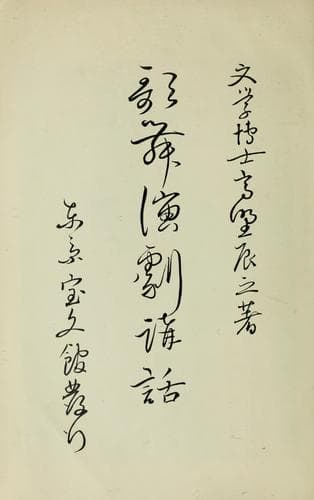 文学博士高野辰之著
歌舞演劇講話
东京宝文館発行